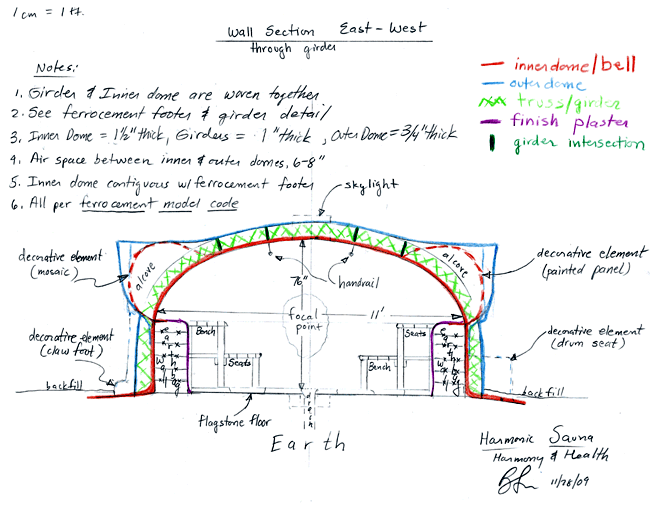 1 cm = 1 ft.
Wall Section East-West
through girder
Notes:
1. Girder & Inner dome are woven together
2. See ferrocement footer & girder detail
3. Inner Dome = 1½" thick, Girders = 1" thick, Outer Dome = 3/4" thick
4. Air space between inner & outer domes, 6-8"
5. Inner dome contiguous w/ ferrocement footer
6. All per ferrocement model code
inner dome/bell
outer dome
truss/girder
finish plaster
girder intersection
skylight
decorative element
(mosaic)
alcove
76"
handrail
alcove
decorative element
(painted panel)
focal
point
11'
decorative element
(claw foot)
Bench
Seats
Seats
Bench
decorative element
(drum seat)
backfill
backfill
flagstone floor
Earth
Harmonic Sauna
Harmony & Health
11/28/09